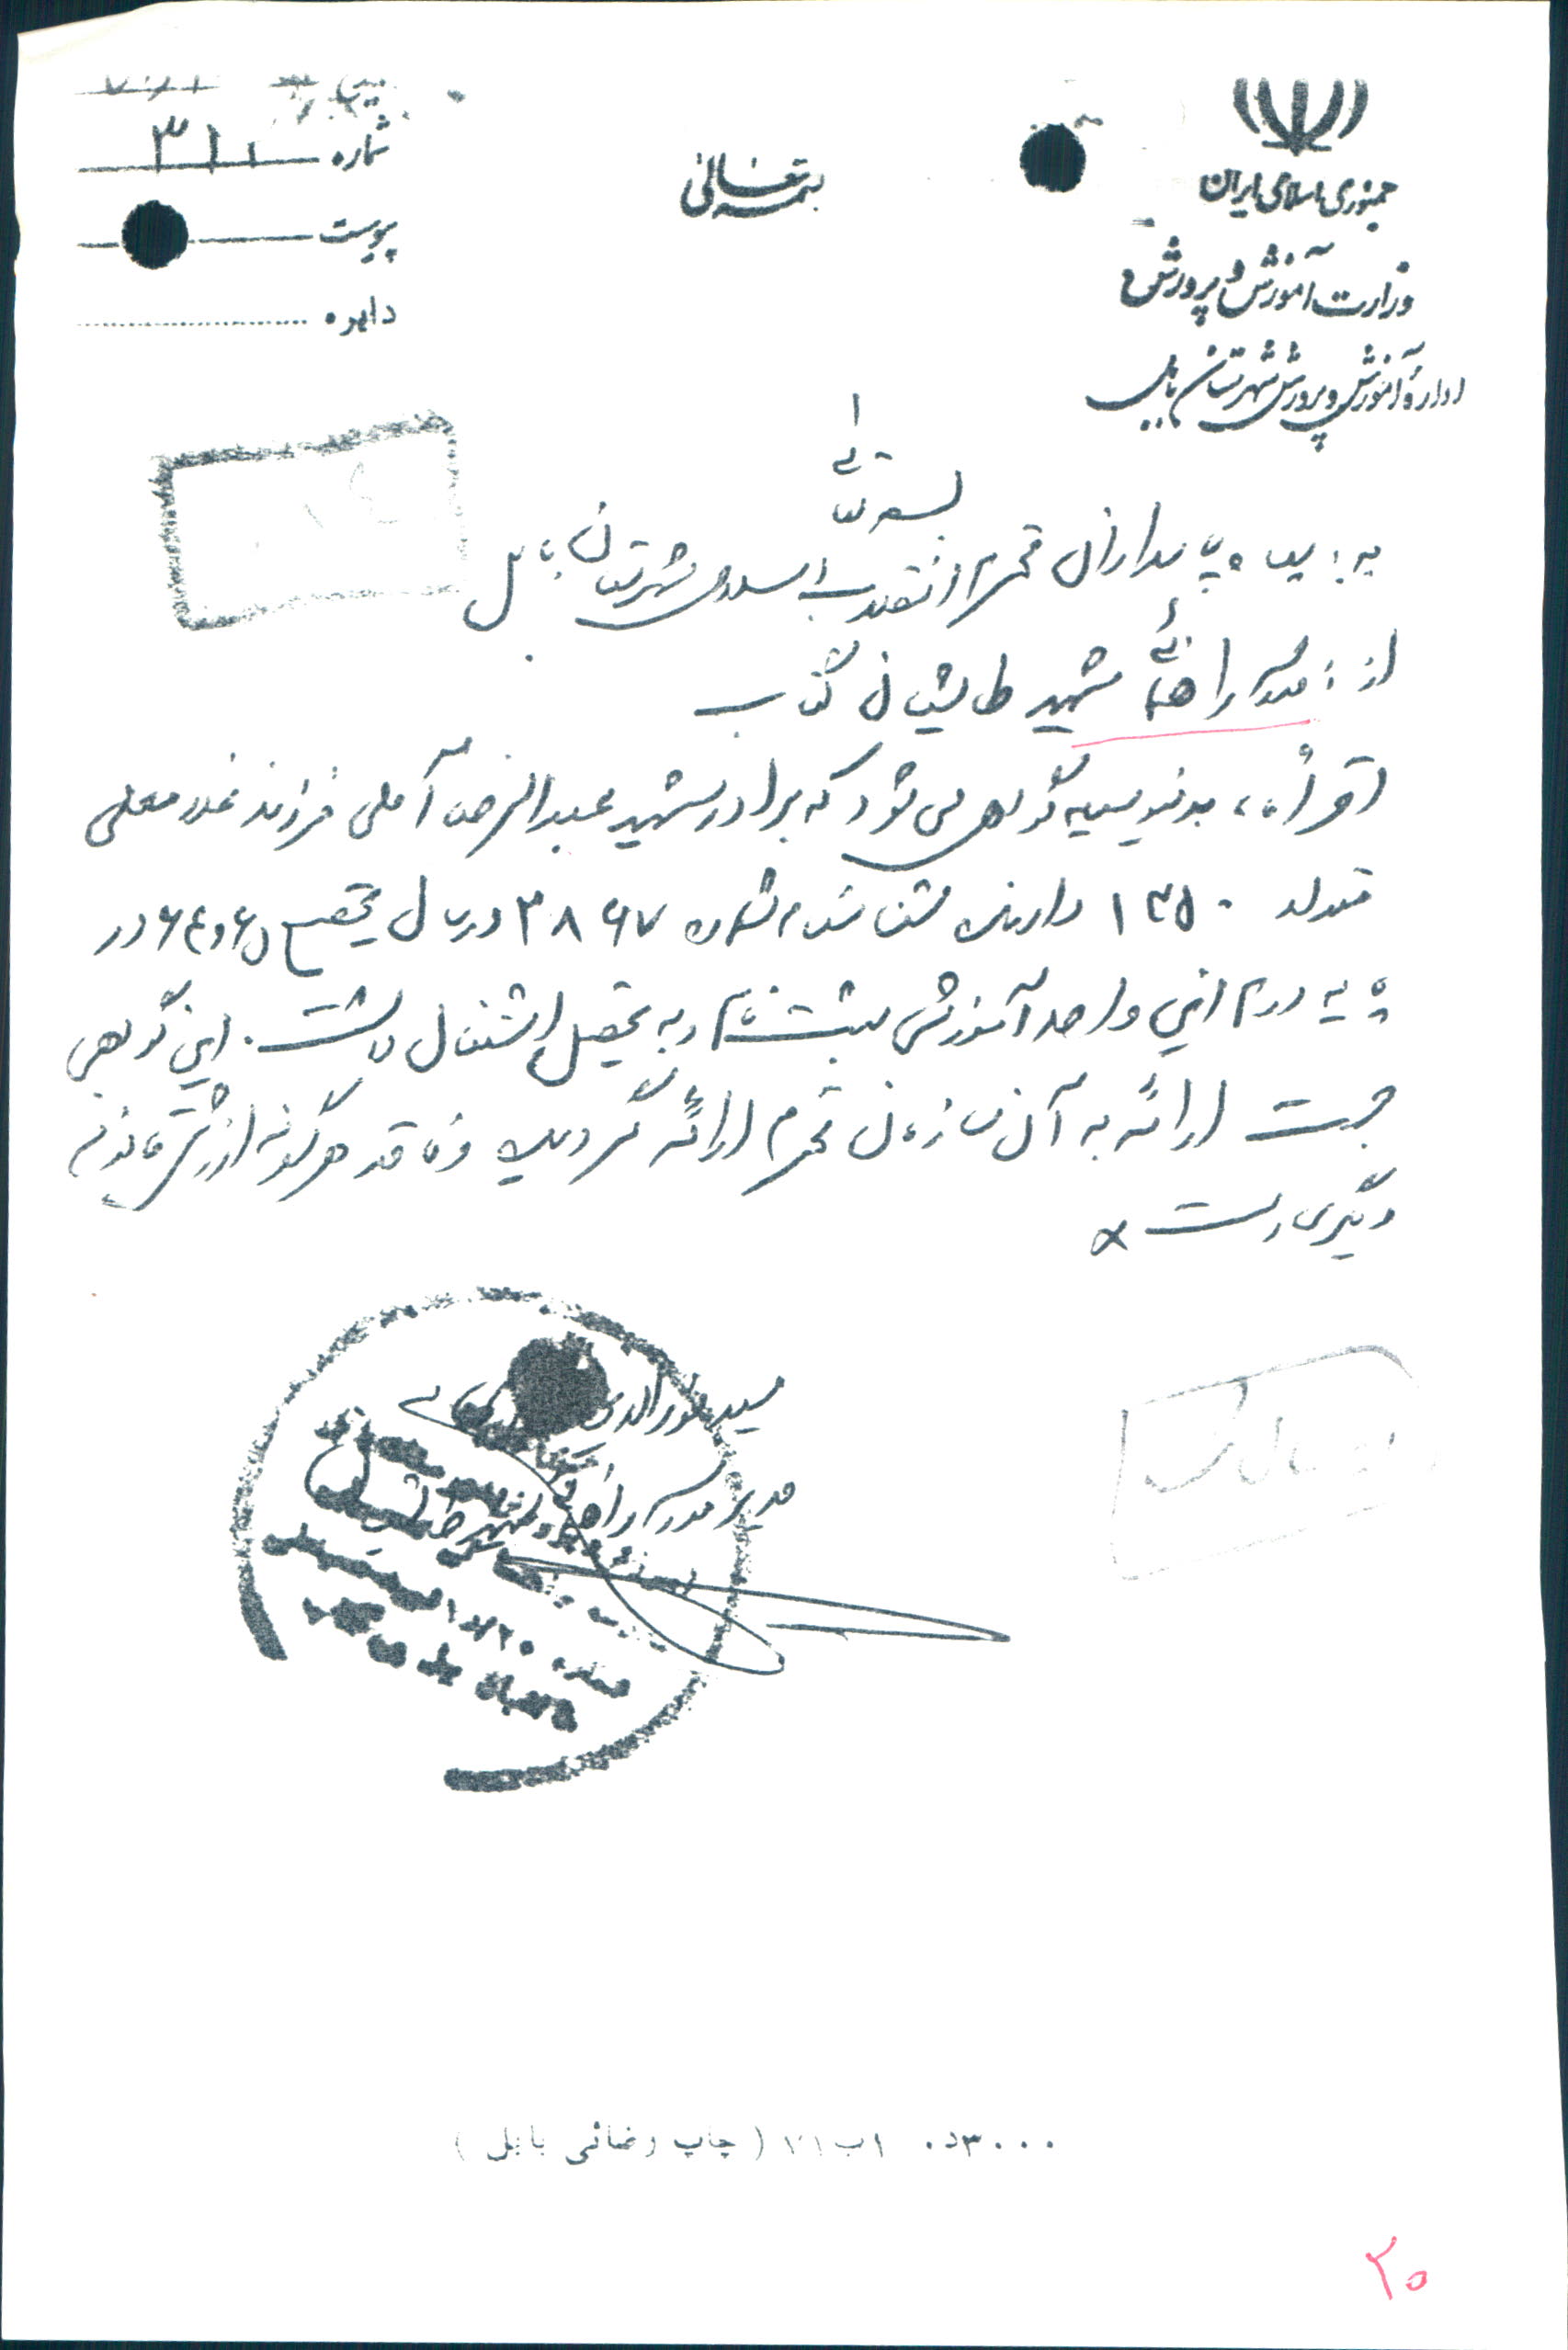 جمهوری اسلامی ایران
وزارت آموزش و پرورش
ادارهٔ آموزش و پرورش شهرستان بابل
بسمه تعالی
شماره ۳۱۱
پیوست
دایره
بسمه تعالی
به: سپاه پاسداران محترم انقلاب اسلامی شهرستان بابل
از: مدرسه راهنمائی شهید طالبیان گتاب
احتراماً، بدینوسیله گواهی می شود که برادر شهید عبدالرضا آملی فرزند غلامعلی
متولد ۱۳۵۰ دارنده شناسنامه شماره ۳۸۶۷ در سال تحصیلی ۶۵و۶۴ در
پایه دوم این واحد آموزشی ثبت نام و به تحصیل اشتغال داشت. این گواهی
جهت ارائه به آن سازمان محترم ارائه گردیده و فاقد هرگونه ارزش قانونی
دیگری است
سید نورالدین
مدیر مدرسه راهنمائی شهید طالبیان
۳۰۰۰د۰ اب ۷۱ (چاپ رضائی بابل)
۲۰